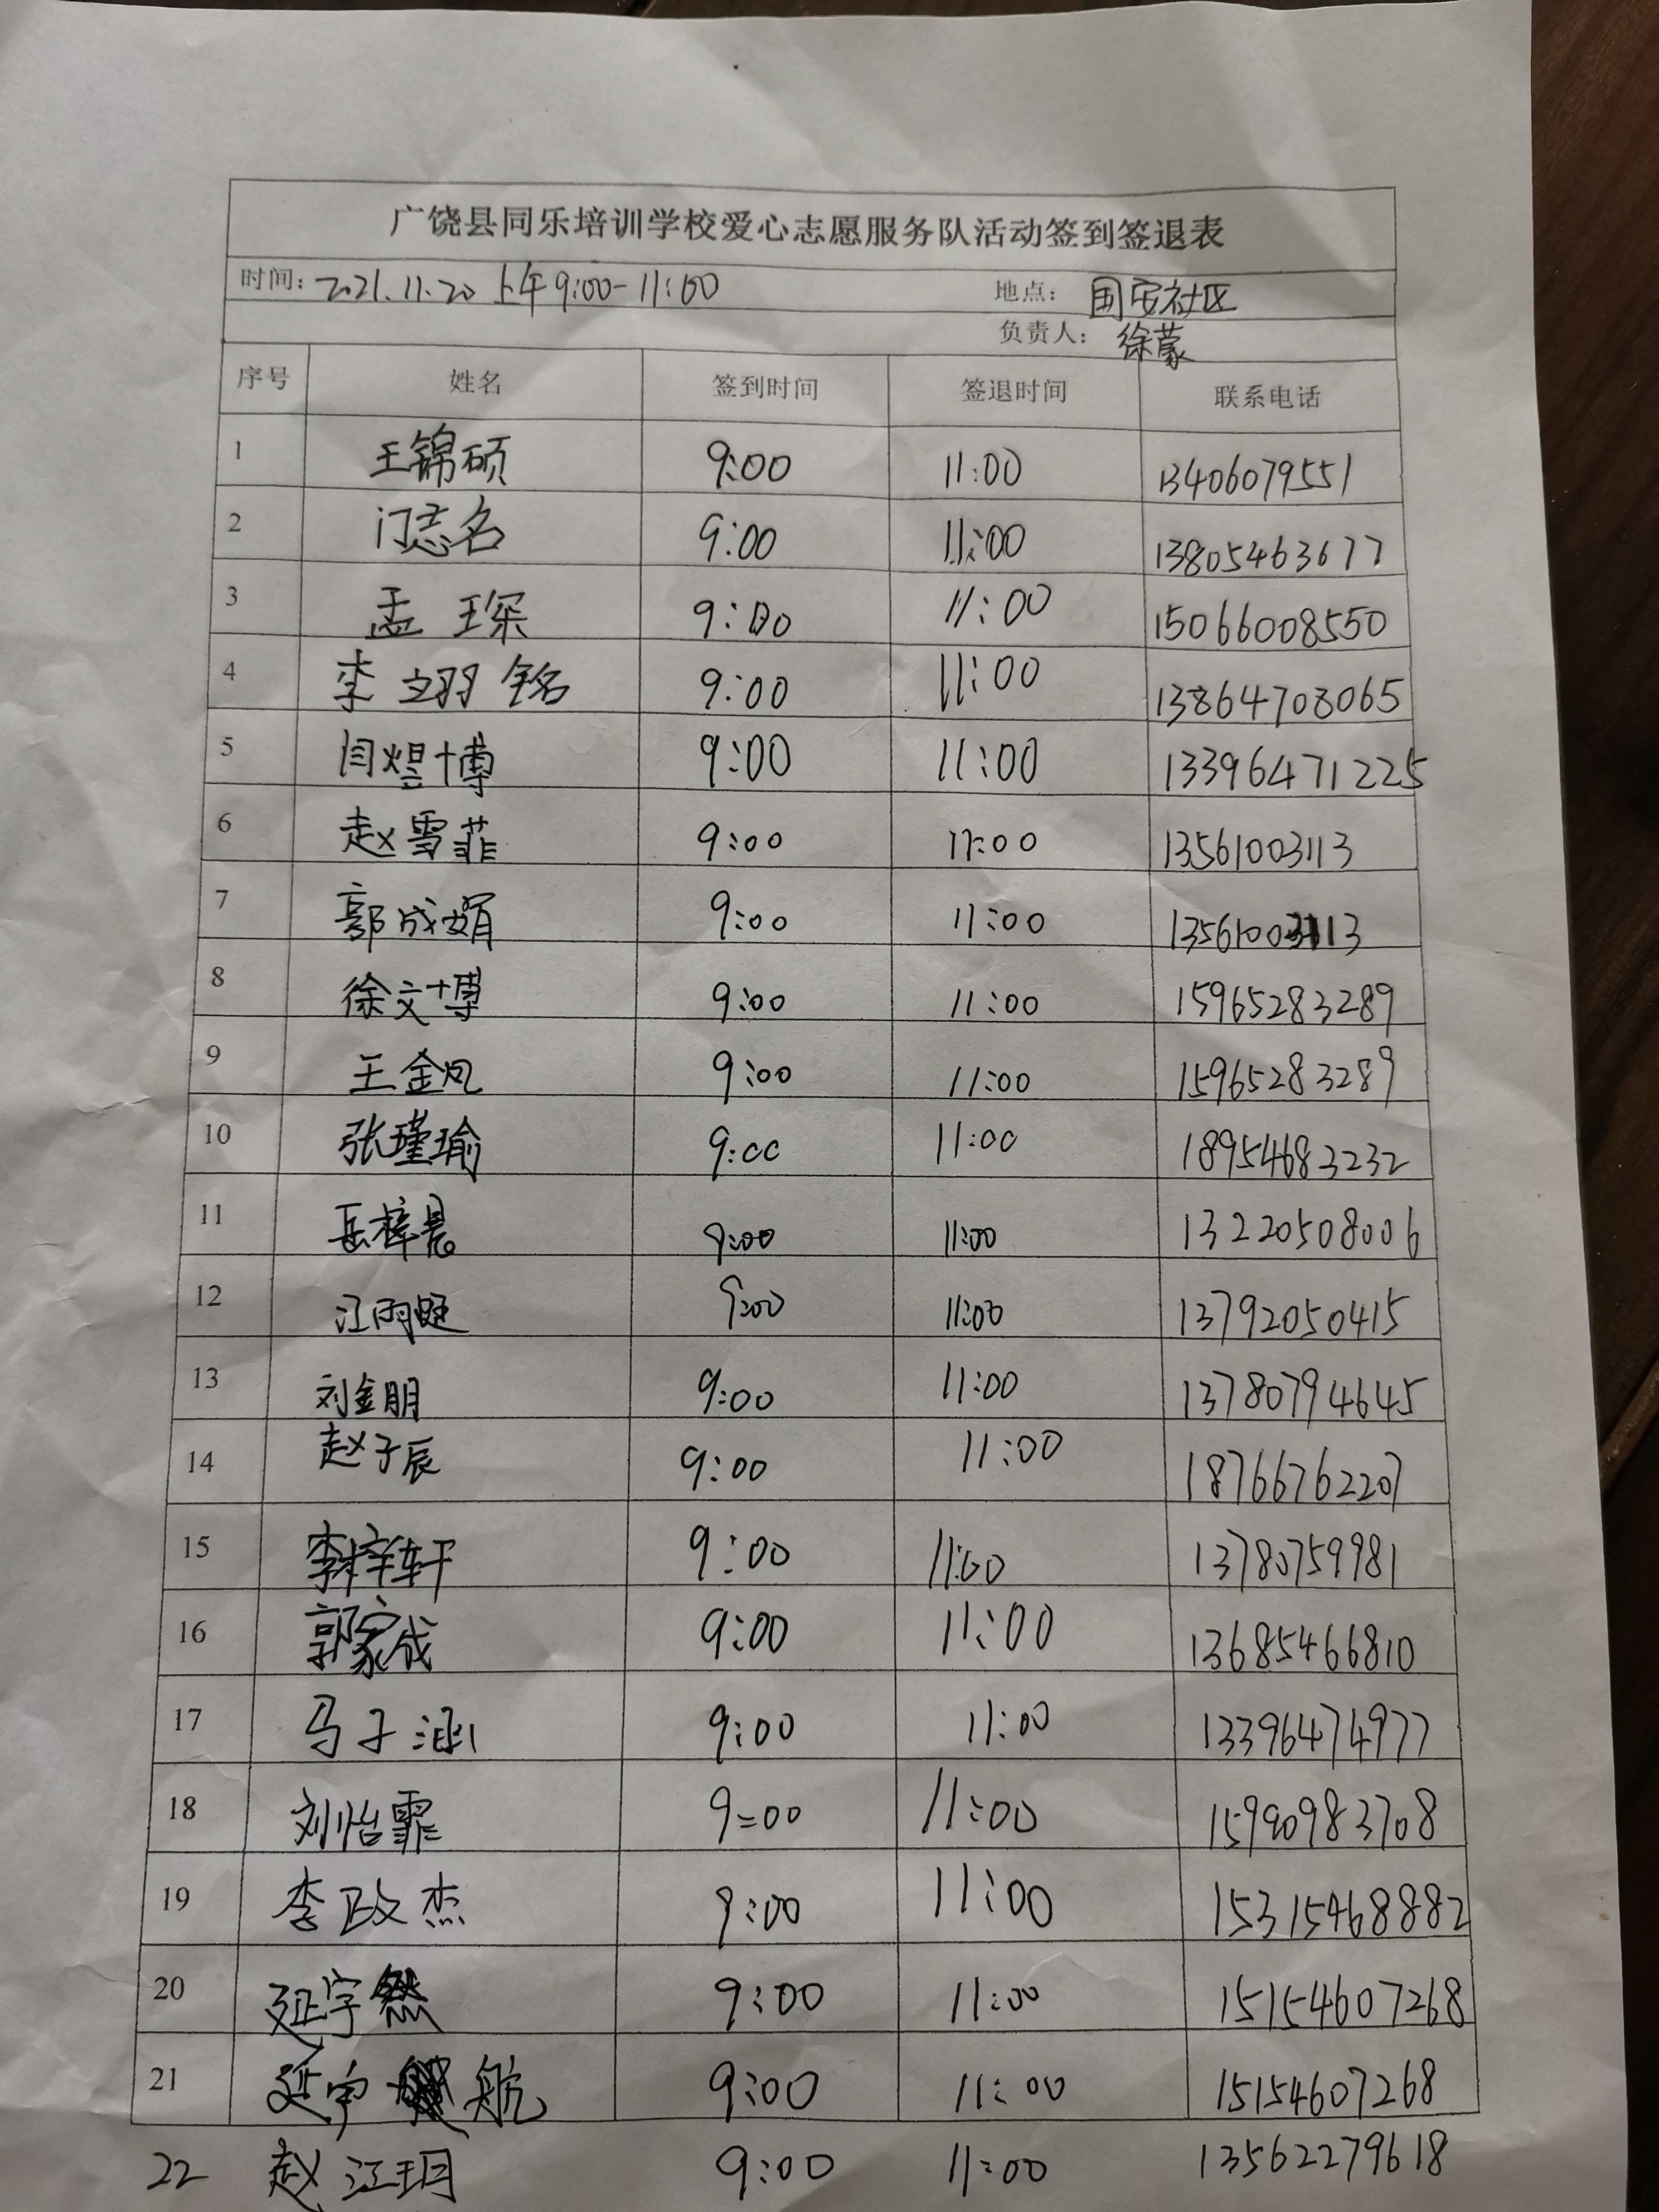 广饶县同乐培训学校爱心志愿服务队活动签到签退表
时间: 2021.11.20 上午9:00-11:00 地点: 国安社区
负责人: 徐蒙
序号 姓名 签到时间 签退时间 联系电话
1 王锦硕 9:00 11:00 13406079551
2 门志名 9:00 11:00 13805463677
3 孟琛 9:00 11:00 15066008550
4 李翊铭 9:00 11:00 13864708065
5 闫煜博 9:00 11:00 13396471225
6 赵雪菲 9:00 11:00 13561003113
7 郭成娟 9:00 11:00 13561003113
8 徐文博 9:00 11:00 15965283289
9 王金凤 9:00 11:00 15965283289
10 张瑾瑜 9:00 11:00 18954683232
11 岳梓晨 9:00 11:00 13220508006
12 江雨 9:00 11:00 13792050415
13 刘金朋 9:00 11:00 13780794645
14 赵子辰 9:00 11:00 18766762207
15 李梓轩 9:00 11:00 13780759981
16 郭家成 9:00 11:00 13685466810
17 马子涵 9:00 11:00 13396474977
18 刘怡霏 9:00 11:00 15990983708
19 李政杰 9:00 11:00 15315468882
20 延宇然 9:00 11:00 15154607268
21 延宇航 9:00 11:00 15154607268
22 赵江玥 9:00 11:00 13562279618